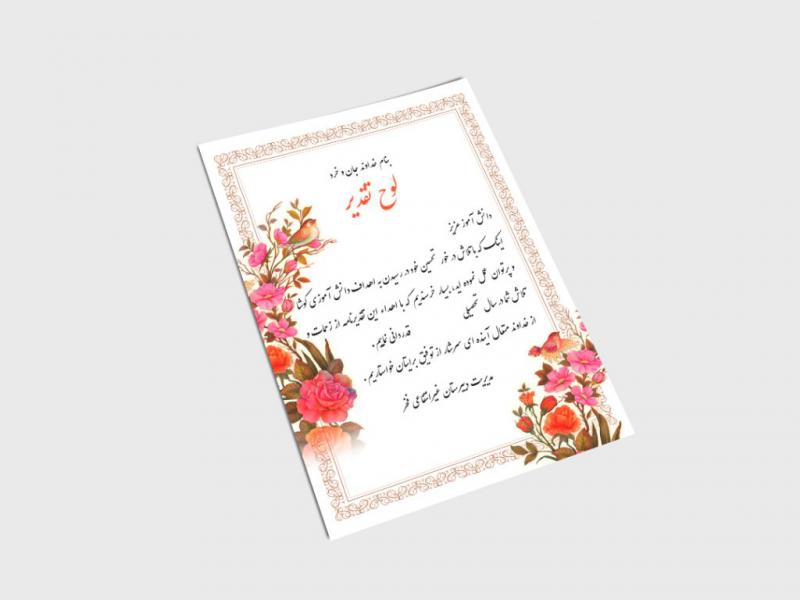 بنام خداوند جان و خرد
لوح تقدیر
دانش آموز عزیز
اینک که با تلاش در خور تحسین خود در رسیدن به اهداف دانش آموزی کوشا
و پرتوان عمل نموده اید، بسیار خرسندیم که با اهداء این تقدیرنامه از زحمات و
تلاش شما در سال تحصیلی قدردانی نمایم.
از خداوند متعال آینده ای سرشار از توفیق برایتان خواستاریم.
مدیریت دبیرستان غیرانتفاعی فخر